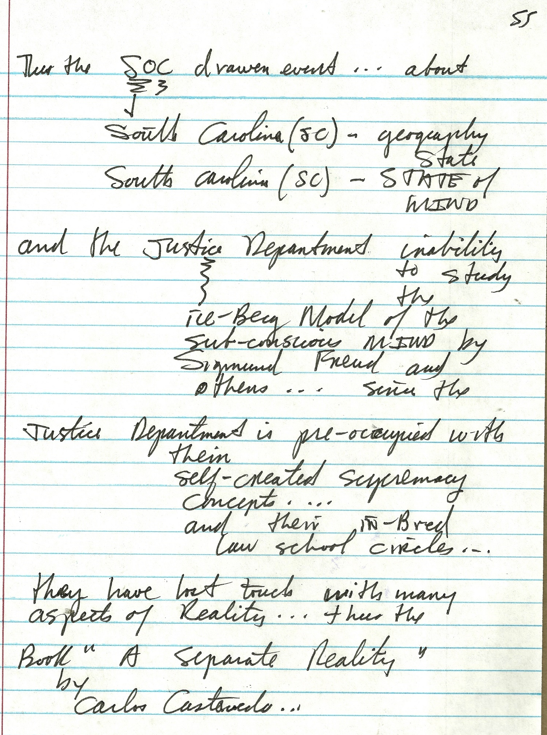 55
Thus the SOC drawen event ... about
South Carolina (SC) - geography
State
South Carolina (SC) - STATE of
MIND
and the Justice Department inability
to study
the
ice-Berg Model of the
sub-conscious MIND by
Sigmund Freud and
others ... since the
Justice Department is pre-occupied with
their
self-created supremacy
concepts ....
and their in-Bred
law school circles ...
they have lost touch with many
aspects of Reality ... thus the
Book " A Separate Reality "
by
Carlos Castanedo ...